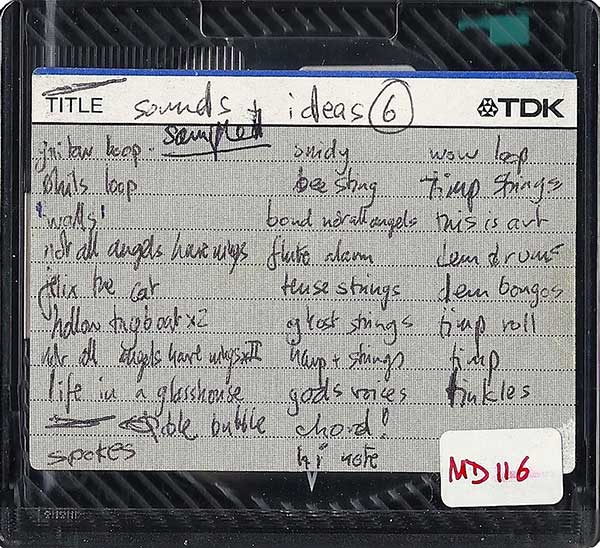 TITLE sounds + ideas 6
TDK
sampled
guitar loop.
phils loop
'walls'
not all angels have wings
felix the cat
hollow tugboat x2
not all angels have wings x II
life in a glasshouse
bubble
spokes
bee sting
bond not all angels
flute alarm
tense strings
ghost strings
harp + strings
gods voices
chord!
hi note
wow loop
timp strings
this is art
dem drums
dem bongos
timp roll
timp
tinkles
MD 116